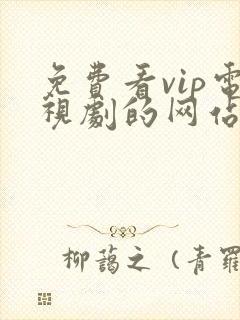 免費看vip電
視劇的网佔
柳藹之（青羅